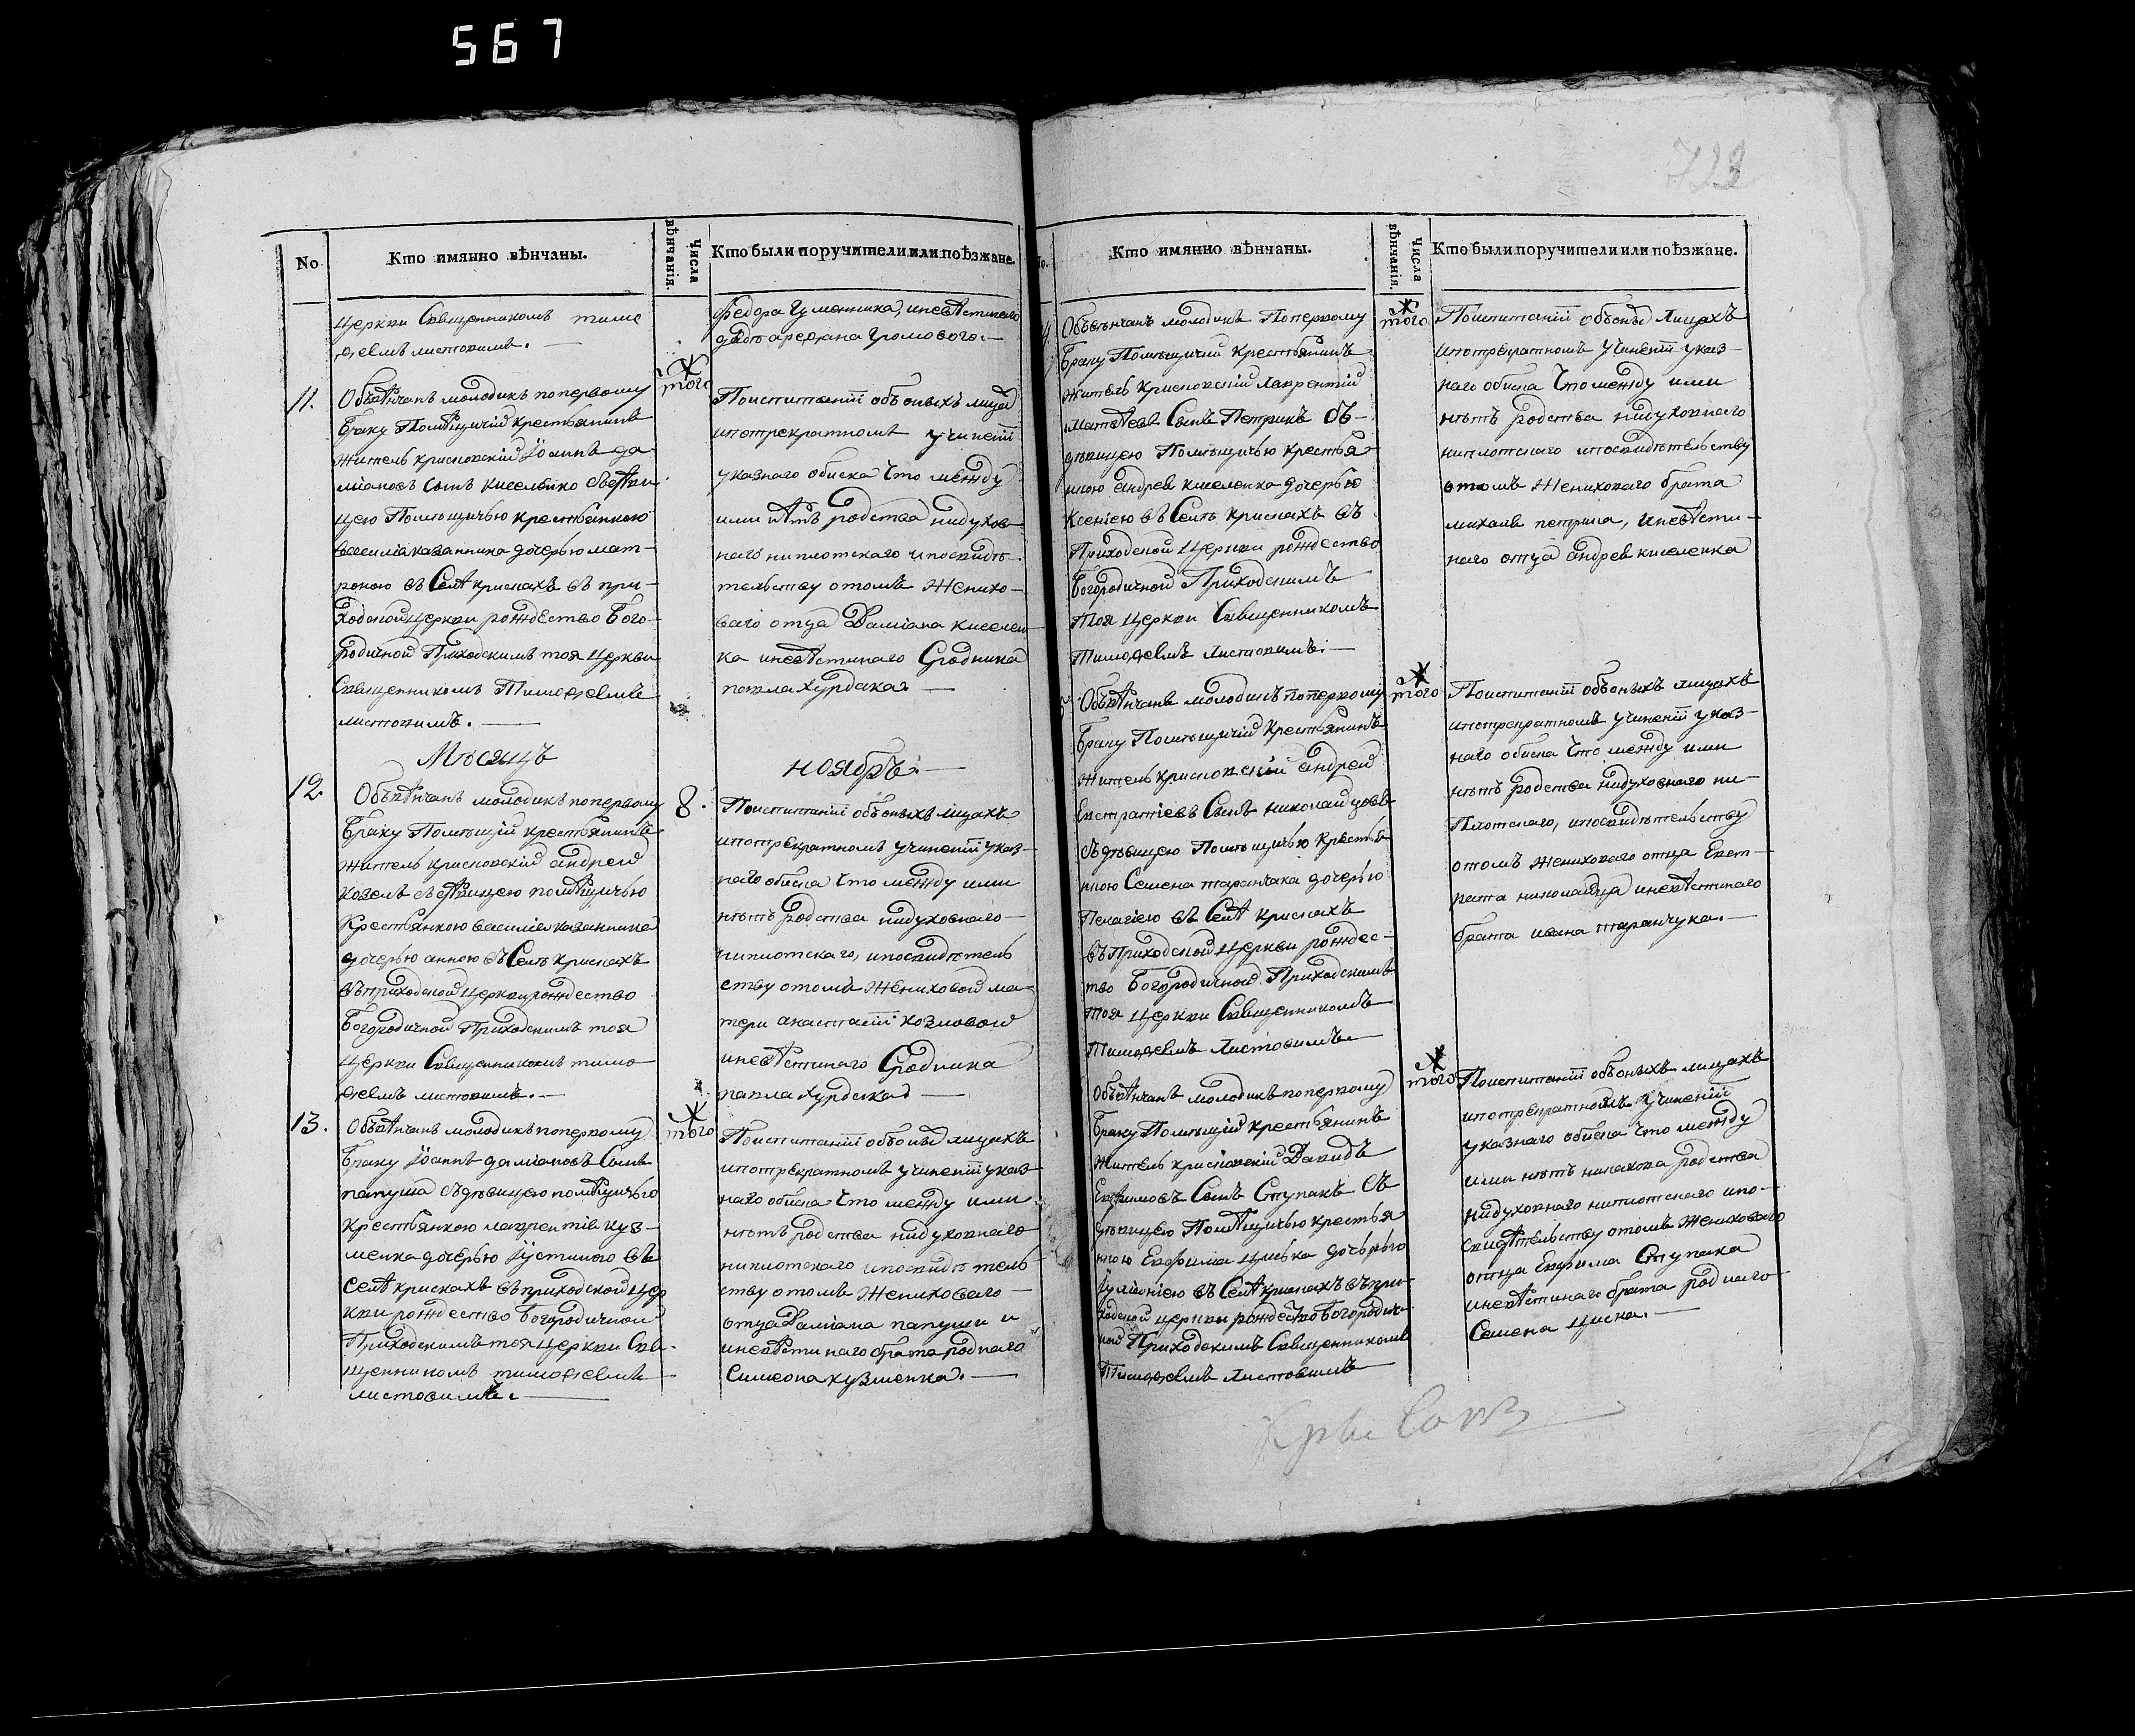 567
723
No
Кто имянно вѣнчаны.
Числа вѣнчанія.
Кто были поручители или поѣзжане.
церкви Священникомъ тимо
ѳеемъ листовимъ. —
федора Гуменника, иневѣстинаго
11.
того
Обвѣнчанъ молодикъ попервому
браку Помѣщичій крестьянинъ
житель крисковскій Іоаннъ да-
міановъ Сынъ киселенко сдѣви
цею Помѣщичью крестьянкою
василіа казанника дочерью мат-
роною въ Селѣ крискахъ въ при-
ходской церкви рождество Бого-
родичной Приходскимъ тоя церкви
Священникомъ Тимоѳеемъ
листовимъ. —
Поиспитаніи объоныхъ лицах
ипотрекратномъ учиненіи
указнаго обиска Что между
ими нѣтъ родства нидухов
наго ниплотскаго ипосвидѣ-
тельству отомъ Жених-
ваго отца Даміана киселен-
ка иневѣстинаго Сродника
павла хурдска —
Мѣсяцъ
ноябрь. —
12.
8.
Обвѣнчанъ молодикъ попервому
браку Помѣщій крестьянинъ
житель крисковскій андрей
козелъ съдѣвицею помѣщичью
Крестьянкою василіа казанника
дочерью анною въ Селѣ крискахъ
въприходской церкви рождество
богородичной Приходскимъ тоя
церкви Священникомъ тимо
ѳеемъ листовимъ. —
Поиспитаніи объоныхъ лицахъ
ипотрекратномъ учиненіи указ-
наго обиска Что между ими
нѣтъ родства нидуховнаго
ниплотскаго, ипосвидѣтель
ству отомъ Жениховой ма-
тери анастасіи козловой
иневѣстинаго Сродника
павла хурдска —
13.
того
Обвѣнчанъ молодикъ попервому
браку Іоаннъ даміановъ Сынъ
папуша съдѣвицею помѣщичью
крестьянкою лаврентія куз-
менка дочерью Іустиною въ
Селѣ крискахъ въприходской цер
кви рождество богородичной
Приходскимъ тоя церкви Свя-
щенникомъ тимоѳеемъ
листовимъ. —
Поиспитаніи объоных лицахъ
ипотрекратномъ учиненіи указ-
наго обиска Что между ими
нѣтъ родства нидуховнаго
ниплотскаго ипосвидѣтель-
ству отомъ Жениховаго
отца Даміана папуши и
иневѣстинаго брата роднаго
Симеона кузменка. —
No.
Кто имянно вѣнчаны.
Числа вѣнчанія.
Кто были поручители или поѣзжане.
того
Обвѣнчанъ молодикъ Попервому
браку Помѣщичій Крестьянинъ
житель крисковскій лаврентій
матвѣевъ Сынъ Петрикъ съ
дѣвицею Помѣщичью крестья
нкою андрея киселенка дочерью
Ксеніею въ Селѣ крискахъ въ
Приходской церкви рождество
Богородичной Приходскимъ
тоя церкви Священникомъ
Тимоѳеемъ Листовимъ: —
Поиспитаніи объоных Лицахъ
ипотрекратномъ учиненіи указ-
наго обиска Что между ими
нѣтъ родства нидуховнаго
ниплотскаго ипосвидѣтельству
отомъ Жениховаго брата
михаила петрика, иневѣсти-
наго отца андрея киселенка
того
Обвѣнчанъ молодикъ попервому
браку Помѣщичій крестьянинъ
житель крисковскій андрей
Евстратіевъ Сынъ николаицовъ
съдѣвицею Помѣщичью крестья
нкою Семена таранчука дочерью
Пелагіею въ Селѣ крискахъ
въПриходской церкви рождес-
тво Богородичной Приходскимъ
тоя церкви Священникомъ
Тимоѳеемъ Листовимъ
Поиспитаніи объоныхъ лицахъ
ипотрекратномъ учиненіи указ-
наго обиска Что между ими
нѣтъ родства нидуховнаго ни-
плотскаго, ипосвидѣтельству
отомъ жениховаго отца Евст-
рата николайца иневѣстинаго
брата ивана таранчука. —
того
Обвѣнчанъ молодикъ попервому
браку Помѣщій крестьянинъ
житель крисковскій Давидъ
Евфимовъ Сынъ Ступакъ съ
дѣвицею Помѣщичью крестья
нкою Евфима циска дочерью
Іуліаніею въ Селѣ крискахъ въпри-
ходской церкви рождество богородич-
ной Приходскимъ Священникомъ
Тимоѳеемъ Листовимъ
Поиспитаніи объоныхъ лицахъ
ипотрекратномъ учиненіи
указнаго обиска Что между
ими нѣтъ никакова родства
нидуховнаго ниплотскаго ипо-
свидѣтельству отомъ Жениховаго
отца Евфима Ступака
иневѣстинаго брата роднаго
Семена циска. —